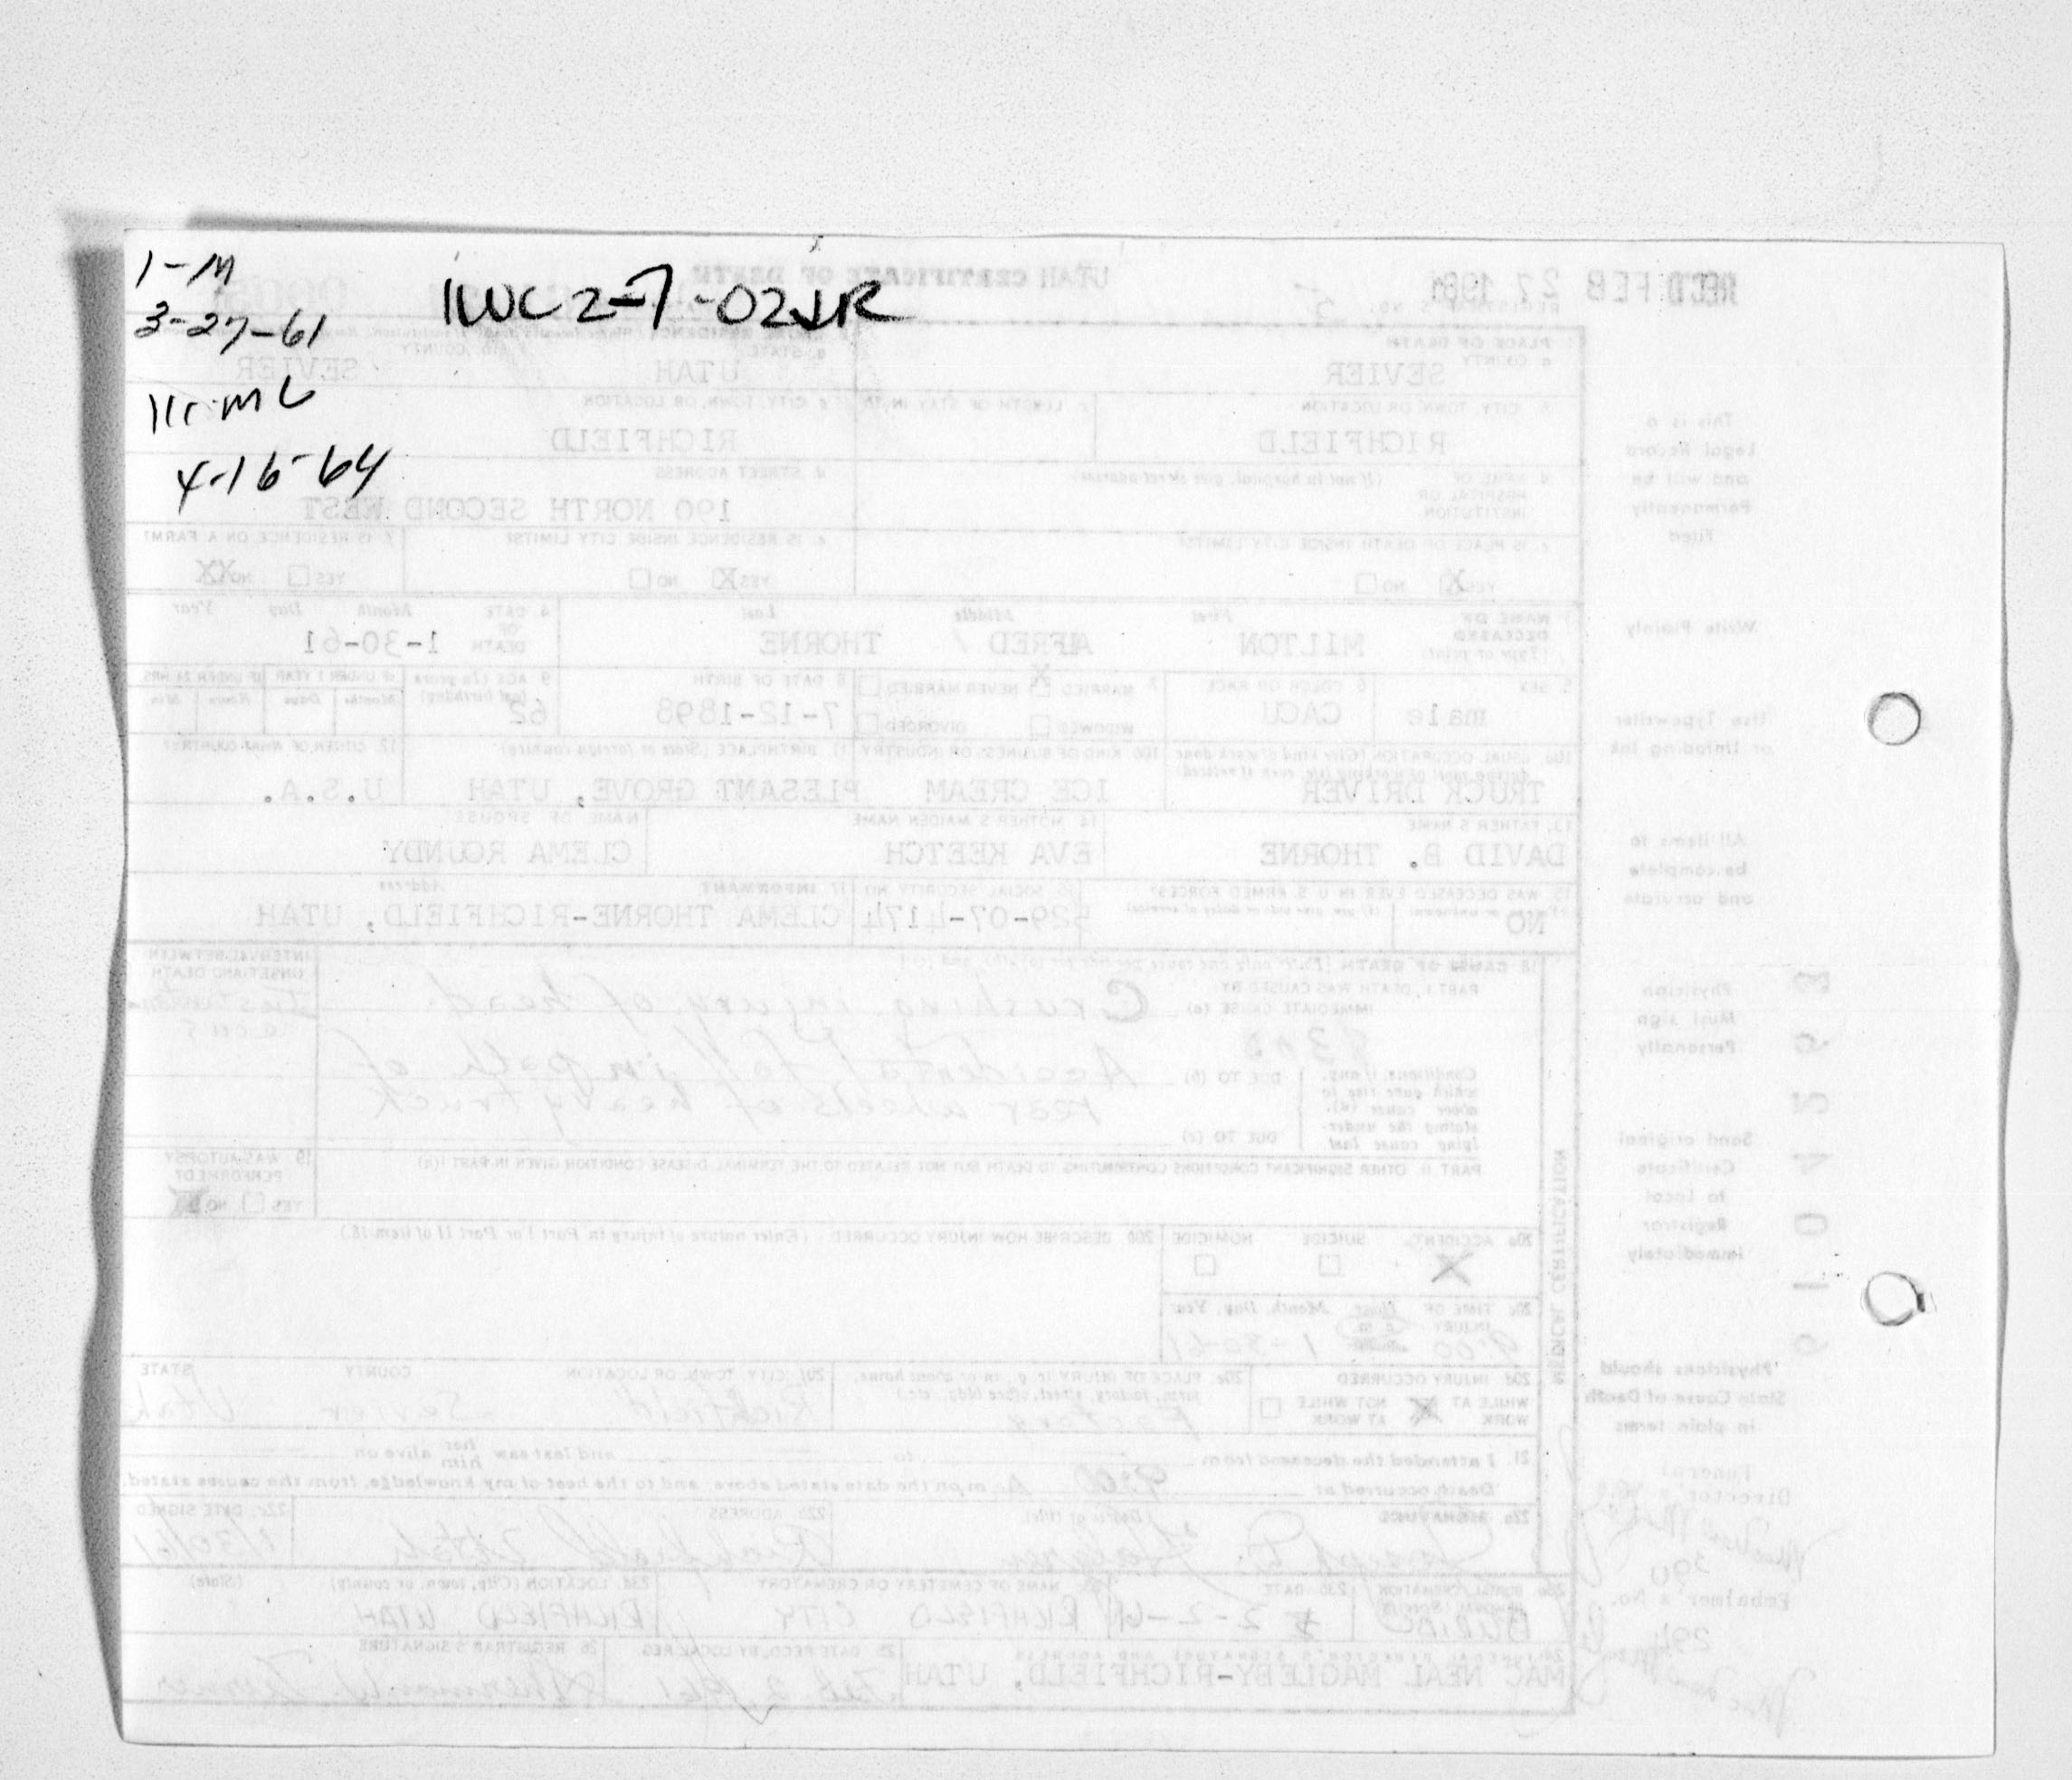 1-M
3-27-61
1WC2-7-02JR
4-16-64
REC'D FEB 27 1961
UTAH CERTIFICATE OF DEATH
PLACE OF DEATH
a. COUNTY
SEVIER
a. STATE
UTAH
b. COUNTY
SEVIER
b. CITY, TOWN, OR LOCATION
RICHFIELD
c. LENGTH OF STAY IN 1b
c. CITY, TOWN, OR LOCATION
RICHFIELD
d. NAME OF HOSPITAL OR INSTITUTION
(If not in hospital, give street address)
d. STREET ADDRESS
190 NORTH SECOND WEST
e. IS PLACE OF DEATH INSIDE CITY LIMITS?
YES X NO
e. IS RESIDENCE INSIDE CITY LIMITS?
YES X NO
f. IS RESIDENCE ON A FARM?
YES NO XX
NAME OF DECEASED
(Type or print)
First Middle Last
MILTON ALFRED THORNE
4. DATE OF DEATH
Month Day Year
1-30-61
5. SEX
male
6. COLOR OR RACE
CACU
7. MARRIED X NEVER MARRIED
WIDOWED DIVORCED
8. DATE OF BIRTH
7-12-1898
9. AGE (In years last birthday)
62
IF UNDER 1 YEAR
Months Days
IF UNDER 24 HRS
Hours Min
10a. USUAL OCCUPATION (Give kind of work done during most of working life, even if retired)
TRUCK DRIVER
10b. KIND OF BUSINESS OR INDUSTRY
ICE CREAM
11. BIRTHPLACE (State or foreign country)
PLESANT GROVE, UTAH
12. CITIZEN OF WHAT COUNTRY?
U.S.A.
13. FATHER'S NAME
DAVID B. THORNE
14. MOTHER'S MAIDEN NAME
EVA KEETCH
NAME OF SPOUSE
CLEMA ROUNDY
15. WAS DECEASED EVER IN U.S. ARMED FORCES?
NO
16. SOCIAL SECURITY NO.
529-07-4174
17. INFORMANT Address
CLEMA THORNE-RICHFIELD, UTAH
18. CAUSE OF DEATH [Enter only one cause per line for (a), (b), and (c)]
INTERVAL BETWEEN ONSET AND DEATH
PART I. DEATH WAS CAUSED BY
IMMEDIATE CAUSE (a)
Crushing injury of head.
Conditions, if any, which gave rise to above cause (a), stating the underlying cause last
DUE TO (b)
Accidental fall in path of
rear wheels of heavy truck
DUE TO (c)
PART II. OTHER SIGNIFICANT CONDITIONS CONTRIBUTING TO DEATH BUT NOT RELATED TO THE TERMINAL DISEASE CONDITION GIVEN IN PART I(a)
19. WAS AUTOPSY PERFORMED?
YES NO
20a. ACCIDENT SUICIDE HOMICIDE
X
20b. DESCRIBE HOW INJURY OCCURRED. (Enter nature of injury in Part I or Part II of item 18.)
20c. TIME OF INJURY
Hour Month, Day, Year
9:00 a.m. 1-30-61
20d. INJURY OCCURRED
WHILE AT WORK X NOT WHILE AT WORK
20e. PLACE OF INJURY (e.g., in or about home, farm, factory, street, office bldg., etc.)
Factory
20f. CITY, TOWN, OR LOCATION COUNTY STATE
Richfield Sevier Utah
21. I attended the deceased from to and last saw her him alive on
Death occurred at 9:00 a. m on the date stated above; and to the best of my knowledge, from the causes stated
22a. SIGNATURE (Degree or title)
22b. ADDRESS
Richfield Utah
22c. DATE SIGNED
1/30/61
MEDICAL CERTIFICATION
BURIAL
23b. DATE
2-2-61
23c. NAME OF CEMETERY OR CREMATORY
RICHFIELD CITY
23d. LOCATION (City, town, or county) (State)
RICHFIELD, UTAH
24. FUNERAL DIRECTOR'S SIGNATURE AND ADDRESS
MAC NEAL MAGLEBY-RICHFIELD, UTAH
25. DATE RECD. BY LOCAL REG.
Feb 2, 1961
26. REGISTRAR'S SIGNATURE
This is a
Legal Record
and will be
Permanently
Filed
Write Plainly
Use Typewriter
or Unfading Ink
All items to
be complete
and accurate
Physician
Must sign
Personally
Send original
Certificate
to Local
Registrar
Immediately
Physicians should
State Cause of Death
in plain terms
Funeral
Director's No.
390
Embalmer's No.
294